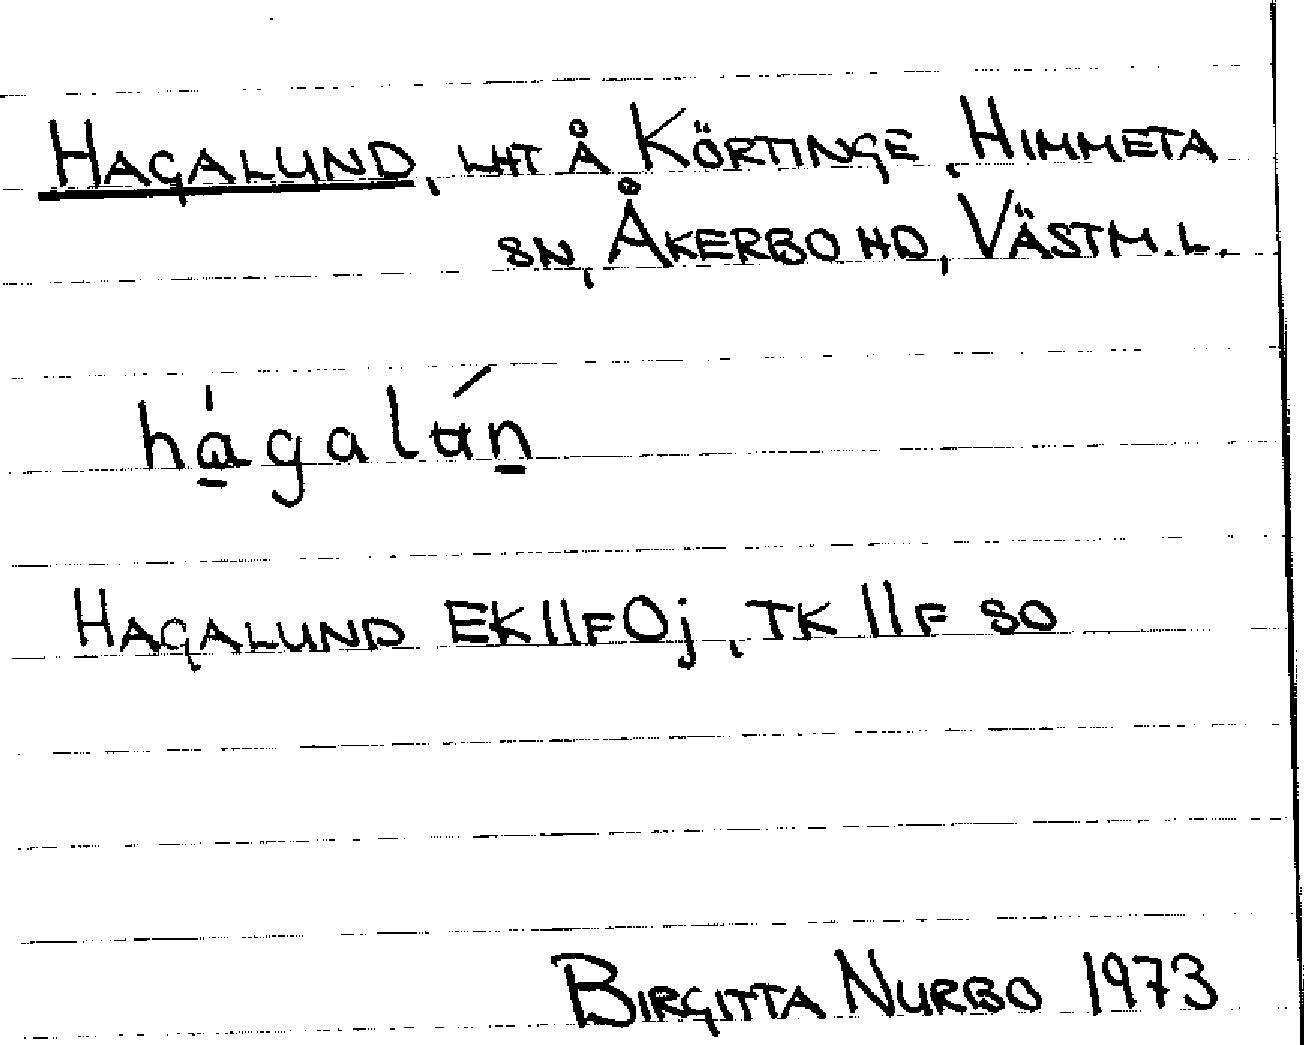 HAGALUND, LHT Å KÖRTINGE, HIMMETA
SN, ÅKERBO HD, VÄSTM.L.
há̠galʉ́n̠
HAGALUND EK 11F 0j, TK 11F SO
BIRGITTA NURBO 1973